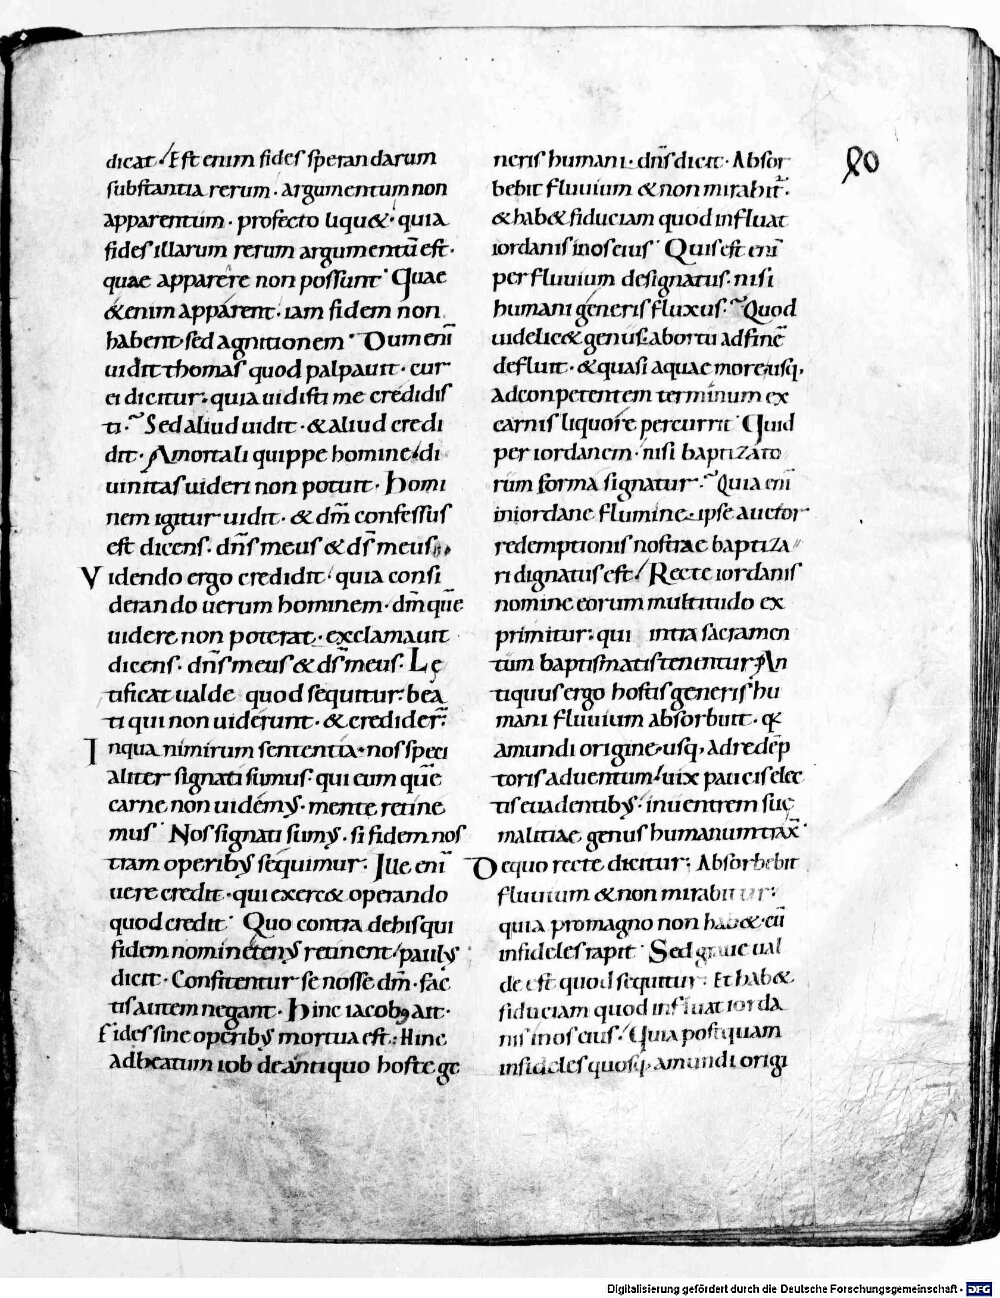 dicat. Est enim fides sperandarum
substantia rerum. argumentum non
apparentum. profecto liqu&. quia
fides illarum rerum argumentū est.
quae apparere non possunt. Quae
&enim apparent. iam fidem non
habent. sed agnitionem. Dum eni̅
uidit thomas quod palpauit. cur
ei dicitur; quia uidisti me credidis
ti. Sed aliud uidit. & aliud credi
dit. A mortali quippe homine. di
uinitas uideri non potuit. homi
nem igitur uidit. & dm̅ confessus
est dicens. dn̅s meus & ds̅ meus;
Videndo ergo credidit. quia consi
derando uerum hominem. dm̅ que̅
uidere non poterat. exclamauit
dicens. dn̅s meus & ds̅ meus. Lę
tificat ualde quod sequitur. bea
ti qui non uiderunt. & credider̅.
In qua nimirum sententia. nos speci
aliter signati sumus. qui eum que̅
carne non uidemꝰ. mente retine
mus. Nos signati sumꝰ. si fidem nos
tram operibꝰ sequimur. Ille eni̅
uere credit. qui exerc& operando
quod credit. Quo contra de his qui
fidem nomine tenꝰ retinent. paulꝰ
dicit. Confitentur se nosse dm̅. fac
tis autem negant. hinc iacobꝰ ait.
Fides sine operibꝰ mortua est. Hinc
ad beatum iob de antiquo hoste ge
neris humani. dn̅s dicit. Absor
bebit fluuium & non mirabit̅.
& hab& fiduciam quod influat
iordanis in os eius. Quis est eni̅
per fluuium designatus. nisi
humani generis fluxus. Quod
uidelic& genus. ab ortu ad fine̅
defluit. & quasi aquae more. usq;
ad conpetentem terminum ex
carnis liquore percurrit. Quid
per iordanem. nisi baptizato
rum forma signatur. Quia eni̅
in iordane flumine. ipse auctor
redemptionis nostrae baptiza
ri dignatus est. Recte iordanis
nomine eorum multitudo ex
primitur; qui intra sacramen
tum baptismatis tenentur. An
tiquus ergo hostis generis hu
mani fluuium absorbuit. q̇
a mundi origine. usq; ad rede̅p
toris aduentum. uix paucis elec
tis euadentibꝰ. in uentrem suę
malitiae genus humanum trax̅.
De quo recte dicitur; Absorbebit
fluuium & non mirabitur;
quia pro magno non hab&. cū
infideles rapit. Sed graue ual
de est quod sequitur. Et hab&
fiduciam quod influat iorda
nis in os eius. Quia postquam
infideles quosq; a mundi origi
Digitalisierung gefördert durch die Deutsche Forschungsgemeinschaft - DFG